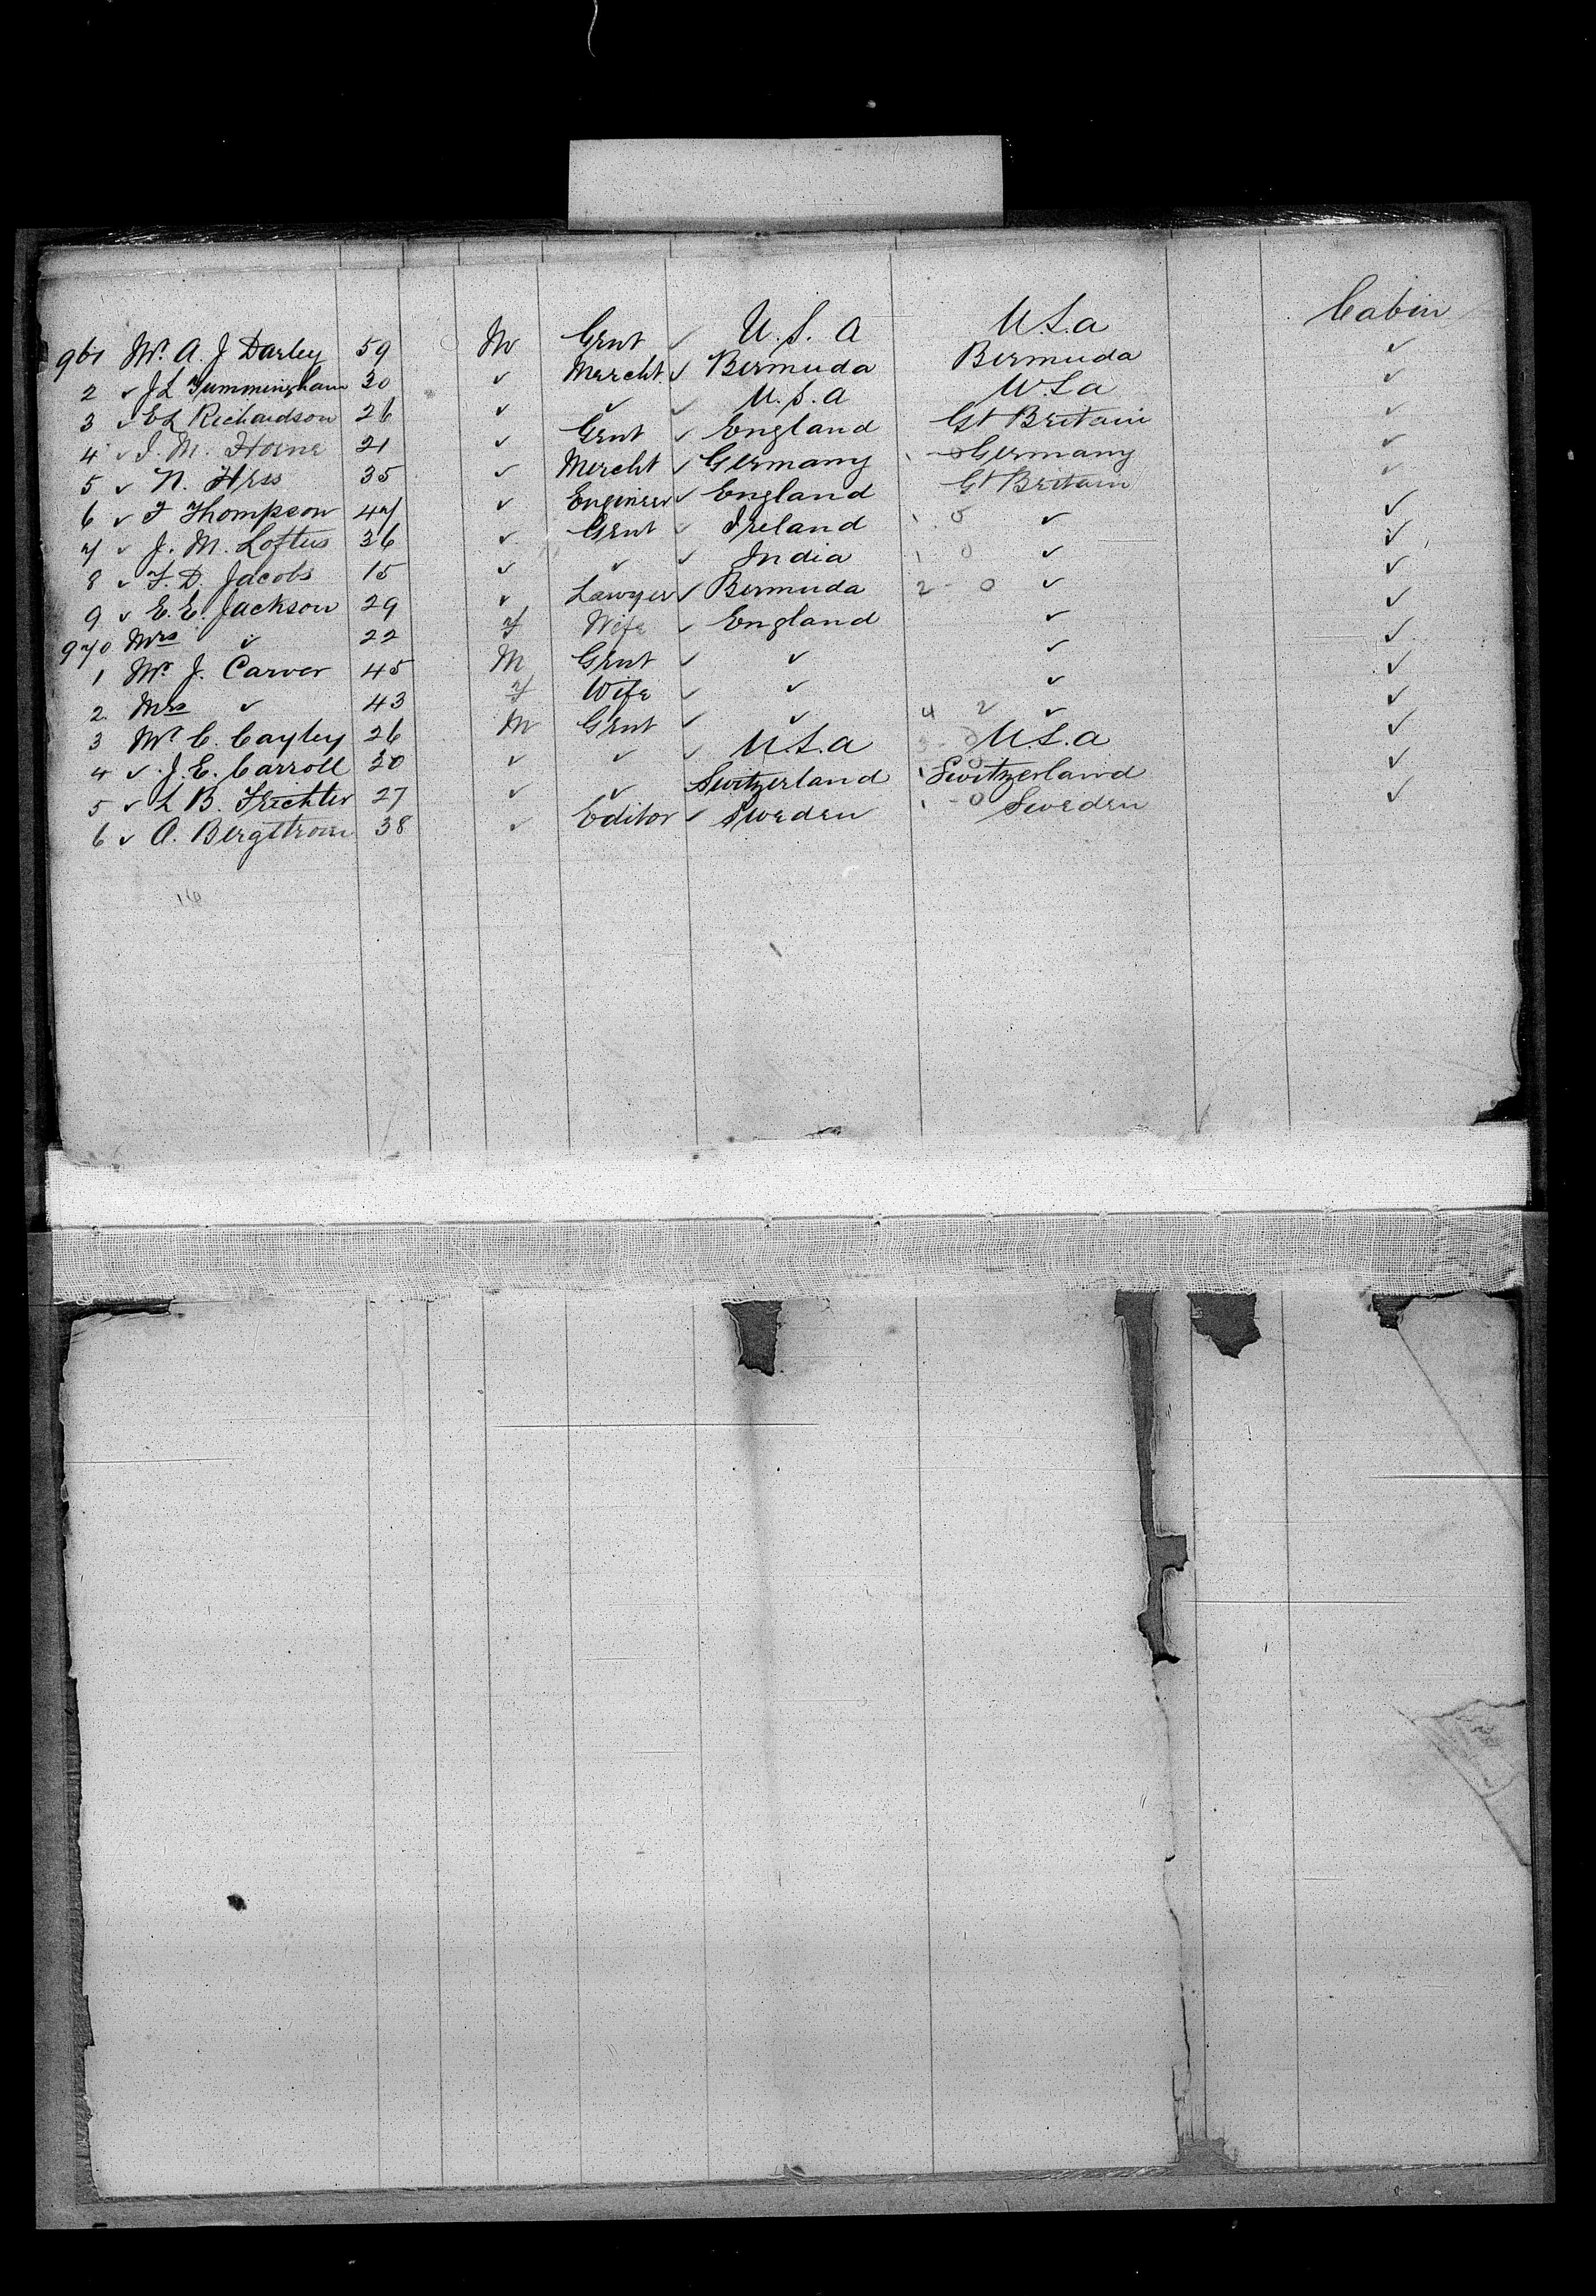 Cabin
961 Mr. A. J Darley 59 M Gent ✓ U. S. A U.S.a ✓
2 ✓ J L Tummingham 30 ✓ Mercht. ✓ Bermuda Bermuda ✓
3 ✓ E L Richardson 26 ✓ ✓ ✓ U. S. A U.S.a ✓
4 ✓ J. M. Horne 21 ✓ Gent ✓ England Gt Britain ✓
5 ✓ N. Hess 35 ✓ Mercht ✓ Germany 1 - 0 Germany ✓
6 ✓ F Thompson 47 ✓ Engineer ✓ England Gt Britain ✓
7 ✓ J. M. Loftus 36 ✓ Gent ✓ Ireland 1. 0 ✓ ✓
8 ✓ F. D. Jacobs 15 ✓ ✓ ✓ India 1. 0 ✓ ✓
9 ✓ E. E. Jackson 29 ✓ Lawyer ✓ Bermuda 2 - 0 ✓ ✓
970 Mrs ✓ 22 F Wife ✓ England ✓ ✓
1 Mr J. Carver 45 M Gent ✓ ✓ ✓ ✓
2. Mrs ✓ 43 F Wife ✓ ✓ ✓ ✓
3 Mr C. Cayley 26 M Gent ✓ ✓ 4 2 ✓ ✓
4 ✓ J. E. Carroll 20 ✓ ✓ ✓ U.S.a 3 - 0 U.S.a ✓
5 ✓ L B. Trichter 27 ✓ ✓ Switzerland 1 Switzerland ✓
6 ✓ A. Bergstrom 38 ✓ Editor ✓ Sweden 1 - 0 Sweden ✓
16